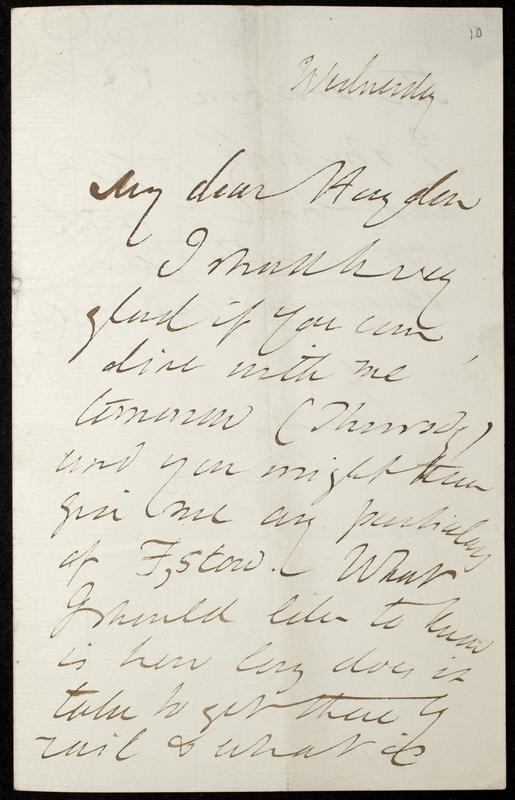 10
Wednesday
My dear Haydon
I shall be very
glad if you can
dine with me
tomorrow (Thursday)
and you might then
give me any particulars
of F,stow. What
I should like to know
is how long does it
take to get there by
rail & what is